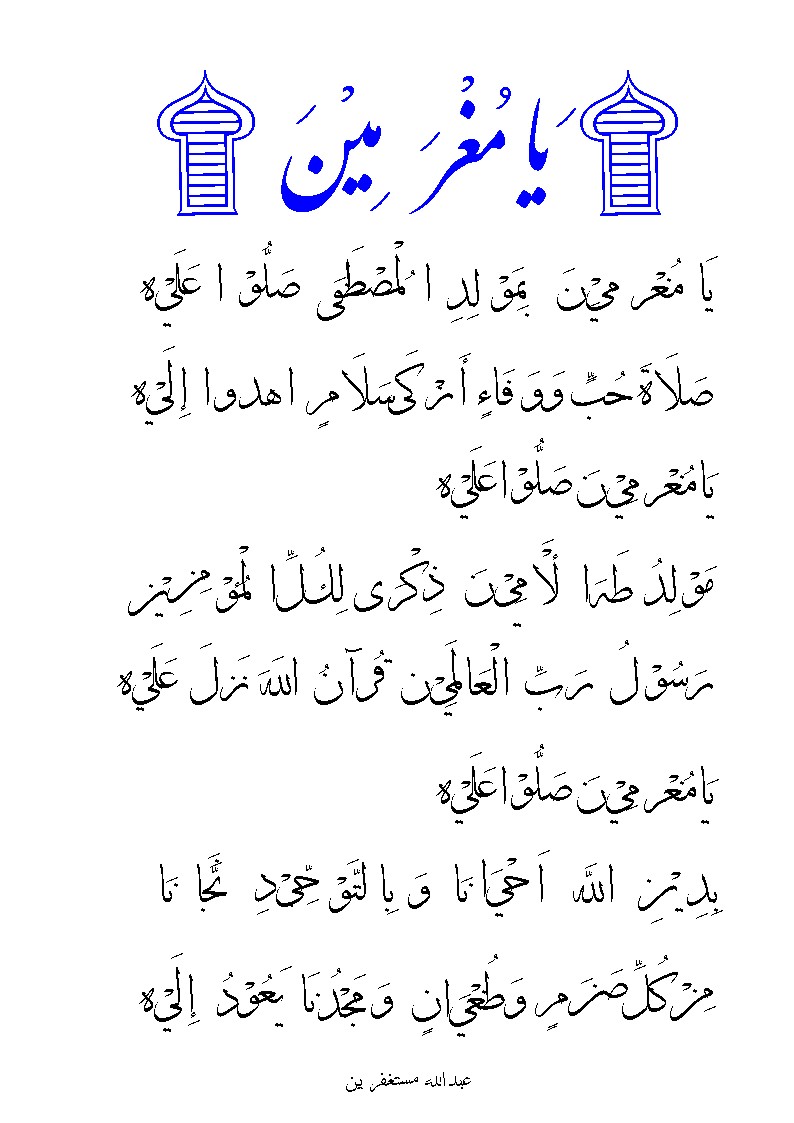 يَا مُغْرَمِيْنَ
يَا مُغْرمِيْنَ بِمَوْلِدِ الْمُصْطَفَى صَلُّوْا عَلَيْه
صَلَاةَ حُبٍّ وَوَفَاءٍ أَزْكَى سَلَامٍ اهدوا إِلَيْه
يَامُغْرمِيْنَ صَلُّوْاعَلَيْه
مَوْلِدُ طَهَا لْأَمِيْنَ ذِكْرى لِكُلِّ الْمُؤْمِنِيْن
رَسُوْلُ رَبِّ الْعَالَمِيْن قُرآنُ اللَّهَ نَزلَ عَلَيْه
يَامُغْرمِيْنَ صَلُّوْاعَلَيْه
بِدِيْنِ اللَّه اَحْيَانَا وَ بِالتَّوْحِيْدِ نَجَّانَا
مِنْ كُلِّ صَنَمٍ وَطُغْيَانٍ وَمَجْدُنَا يَعُوْدُ إِلَيْه
عبدالله مستغفرين